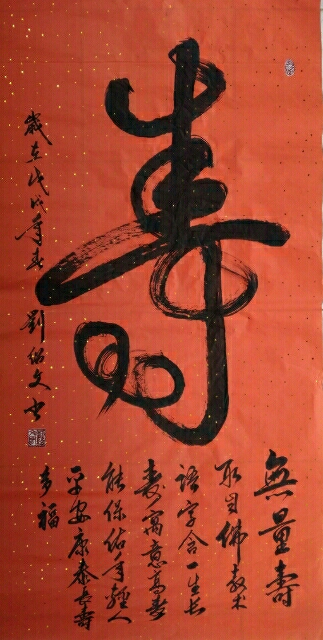 壽
無量壽
取自佛教术
語字含一生長
壽寓意高壽
能保佑年輕人
平安康泰長壽
多福
歲在戊戌年春 劉紹文书